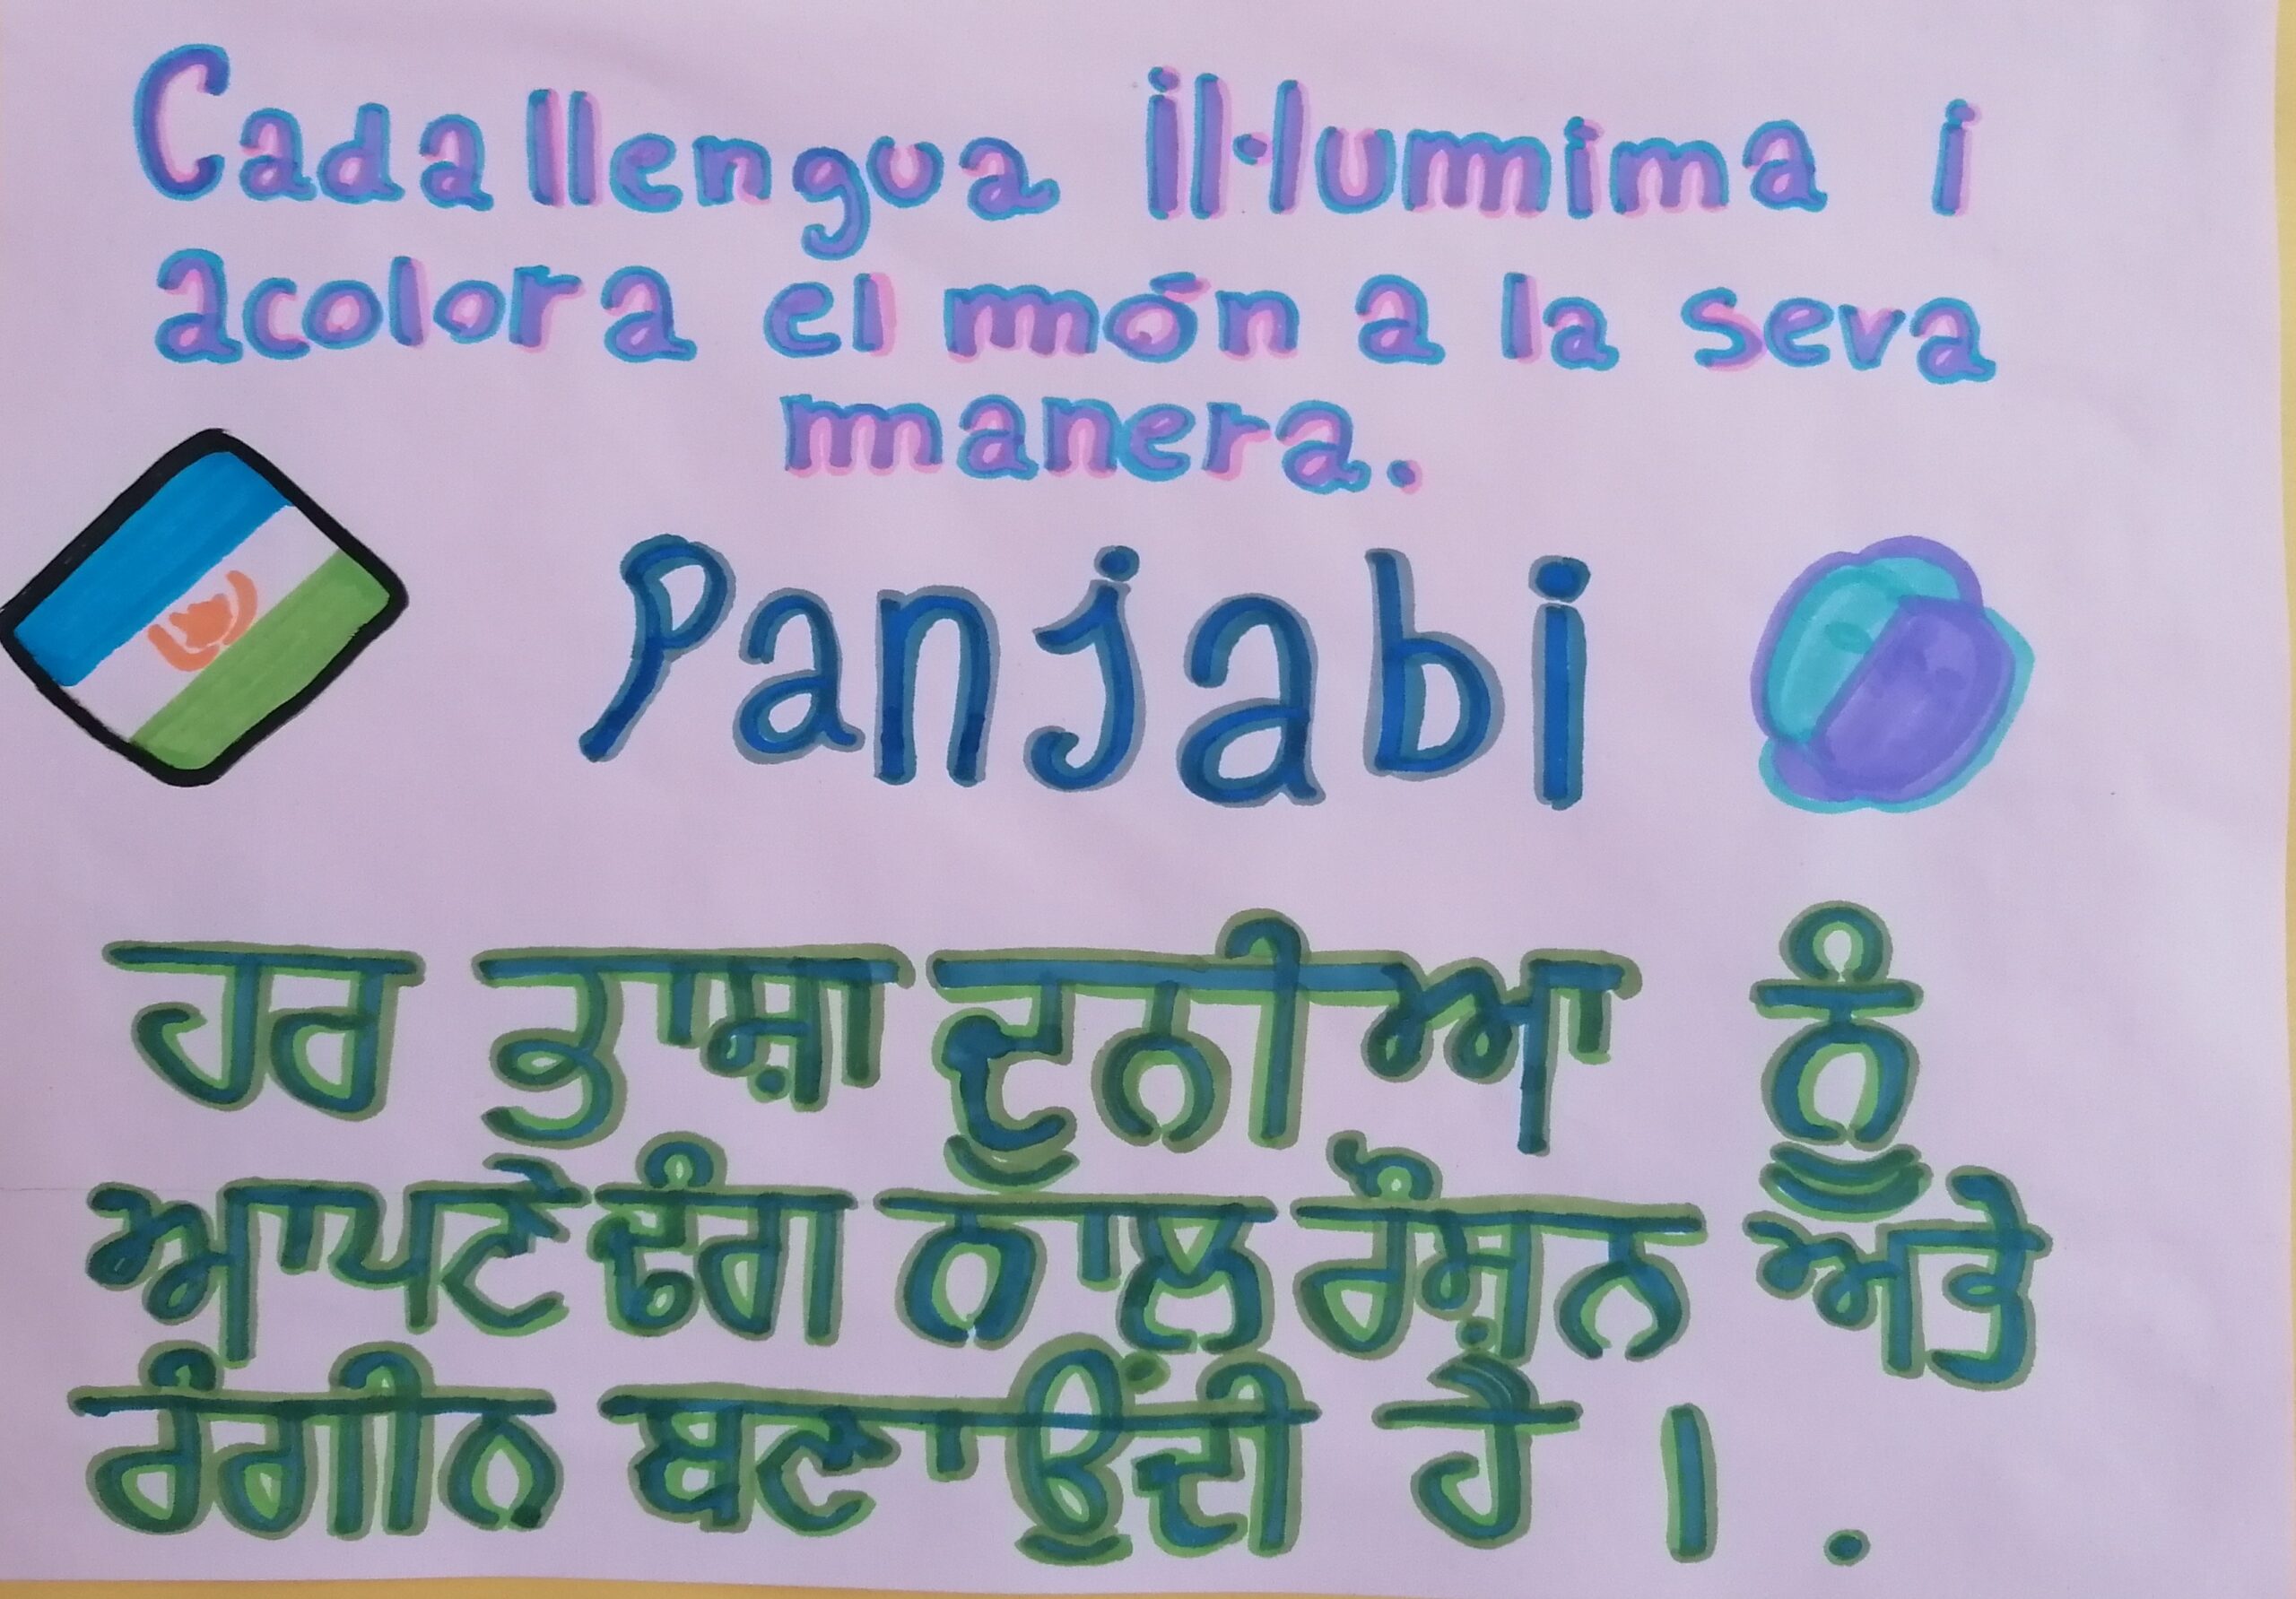 Cada llengua il·lumima i
acolora el món a la seva
manera.
Panjabi
ਹਰ ਭਾਸ਼ਾ ਦੁਨੀਆ ਨੂੰ
ਆਪਣੇ ਢੰਗ ਨਾਲ ਰੌਸ਼ਨ ਅਤੇ
ਰੰਗੀਨ ਬਣਾਉਂਦੀ ਹੈ। .